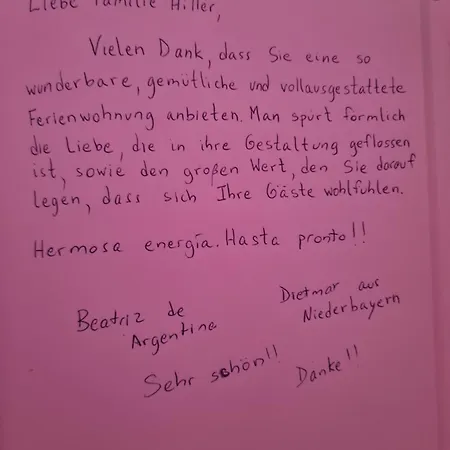 Liebe Familie Hiller,
Vielen Dank, dass Sie eine so
wunderbare, gemütliche und vollausgestattete
Ferienwohnung anbieten. Man spürt förmlich
die Liebe, die in ihre Gestaltung geflossen
ist, sowie den großen Wert, den Sie darauf
legen, dass sich Ihre Gäste wohlfühlen.
Hermosa energía. Hasta pronto!!
Beatriz de
Argentina
Dietmar aus
Niederbayern
Sehr schön!!
Danke!!